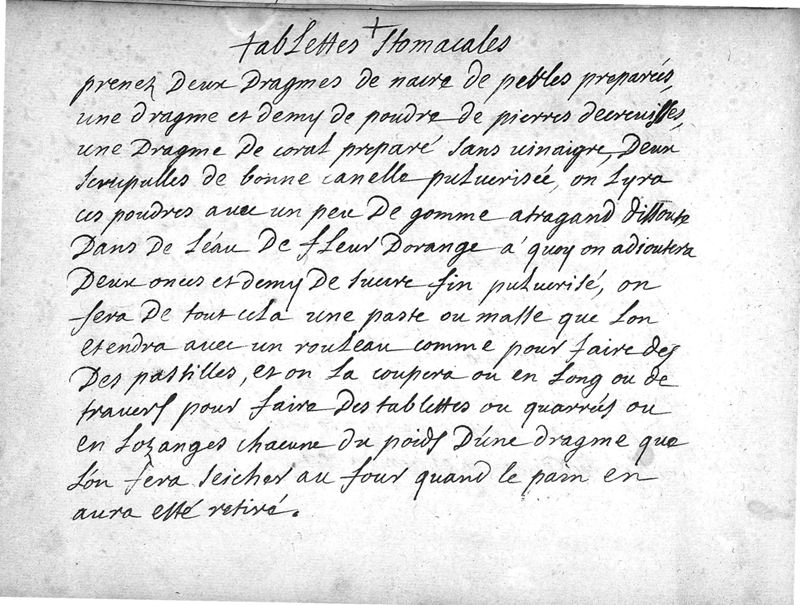 tablettes stomacales
prenez deux dragmes de nacre de perles preparés,
une dragme et demy de poudre de pierres decreuisses,
une dragme de coral preparé sans vinaigre, deux
scrupulles de bonne canelle puluerisée, on lyra
ces poudres auec un peu de gomme atragand dissoute
dans de léau de fleur dorange a' quoy on adioutera
deux onces et demy de sucre fin puluerisé, on
fera de tout cela une paste ou masse que lon
etendra auec un rouleau comme pour faire des
des pastilles, et on la coupera ou en long ou de
travers pour faire des tablettes ou quarrés ou
en lozanges chacune du poids d'úne dragme que
l'ón fera seicher au four quand le pain en
aura esté retiré.